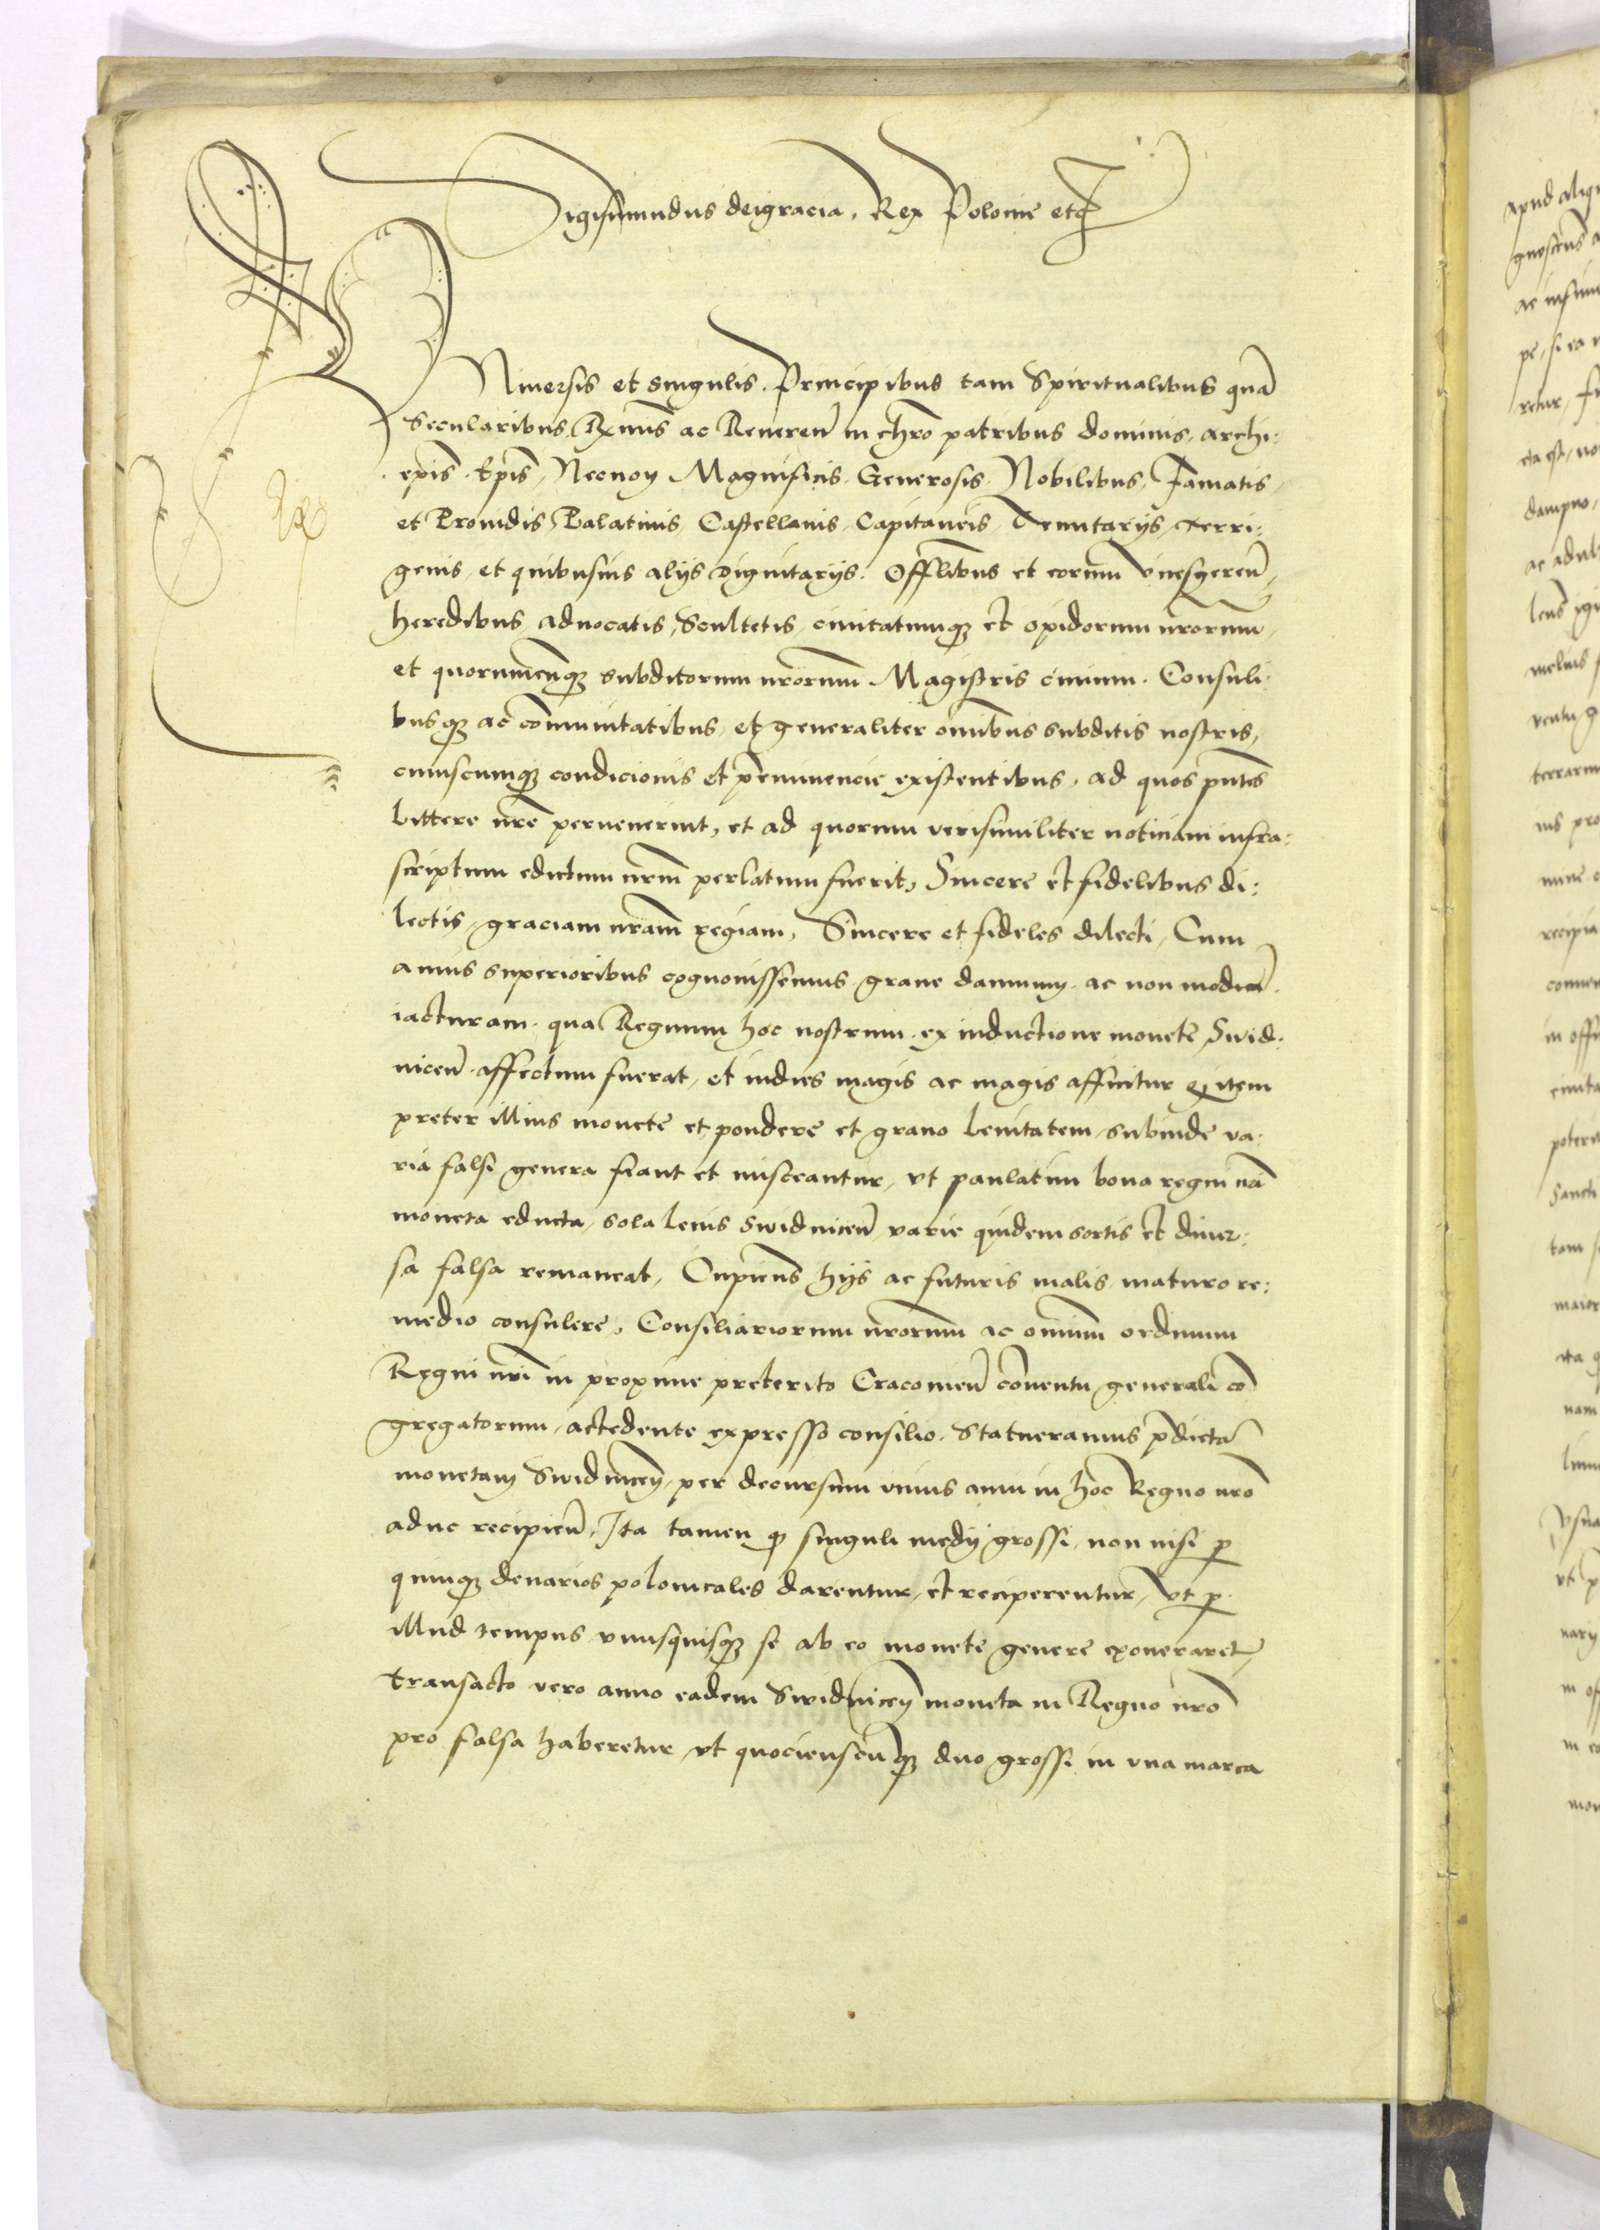 Sigismundus deigracia, Rex Polonie etc
Vniuersis et singulis Principibus tam Spiritualibus quā
Secularibus Rxmīs ac Reuereñ in chrō patribus dominis archi:
ep̄is Ep̄is, Necnon Magnificis Generosis Nobilibus, Famatis,
et Prouidis Palatinis, Castellanis, Capitaneis, Tenutarijs Terri:
genis, et quibusuis alijs dignitarijs. Offl̄ibus et eorum vicesgereñ,
heredibus aduocatis, Scultetis, ciuitatumqȝ et opidorum nrōrum,
et quorumcunqȝ subditorum nrōrum Magistris ciuium. Consuli:
busqȝ ac com̄unitatibus, et generaliter om̄ibus subditis nostris,
cuiuscumqȝ condicionis et p̄eminencie existentibus, ad quos pn̄tes
littere nrē peruenerint, et ad quorum verisimiliter noticiam infra:
scriptum edictum nrm̄ perlatum fuerit, Sincere et fidelibus di:
lectis, graciam nrām regiam, Sincere et fideles dilecti, Cum
annis superioribus cognouissemus graue damnum ac non modicā
iacturam qua Regnum hoc nostrum ex inductione monete Swid:
niceñ affectum fuerat, et indies magis ac magis afficitur item
preter illius monete et pondere et grano leuitatem subinde va:
ria falsi genera fiant et misceantur, vt paulatim bona regni nrā
moneta educta, sola leuis Swidniceñ varie quidem sortis et diuer:
sa falsa remaneat, Cupiens hijs ac futuris malis maturo re:
medio consulere, Consiliariorum nrōrum ac omnium ordinum
Regni nrī in proxime preterito Cracouieñ cōuentu generali cō
gregatorum, accedente expresso consilio. Statueramus p̄dictā
monetam Swidniceñ, per decursum vnius anni in hoc Regno nrō
aduc recipieñ, Ita tamen qȝ singuli medij grossi, non nisi p
quinqȝ denarios polonicales darentur, et reciperentur, Vt p
illud tempus vnusquisqȝ se ab eo monete genere exoneraret,
transacto vero anno eadem Swidniceñ moneta in Regno nrō
pro falsa haberetur, vt quocienscūqȝ duo grossi in vna marca